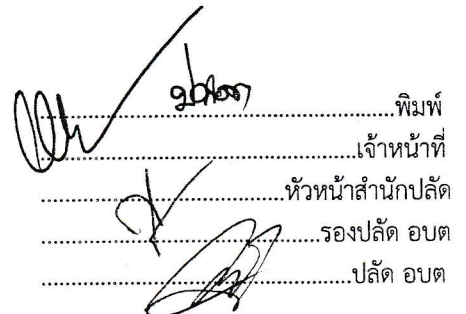 ....................................................พิมพ์
..............................................เจ้าหน้าที่
....................................หัวหน้าสำนักปลัด
.........................................รองปลัด อบต
..............................................ปลัด อบต